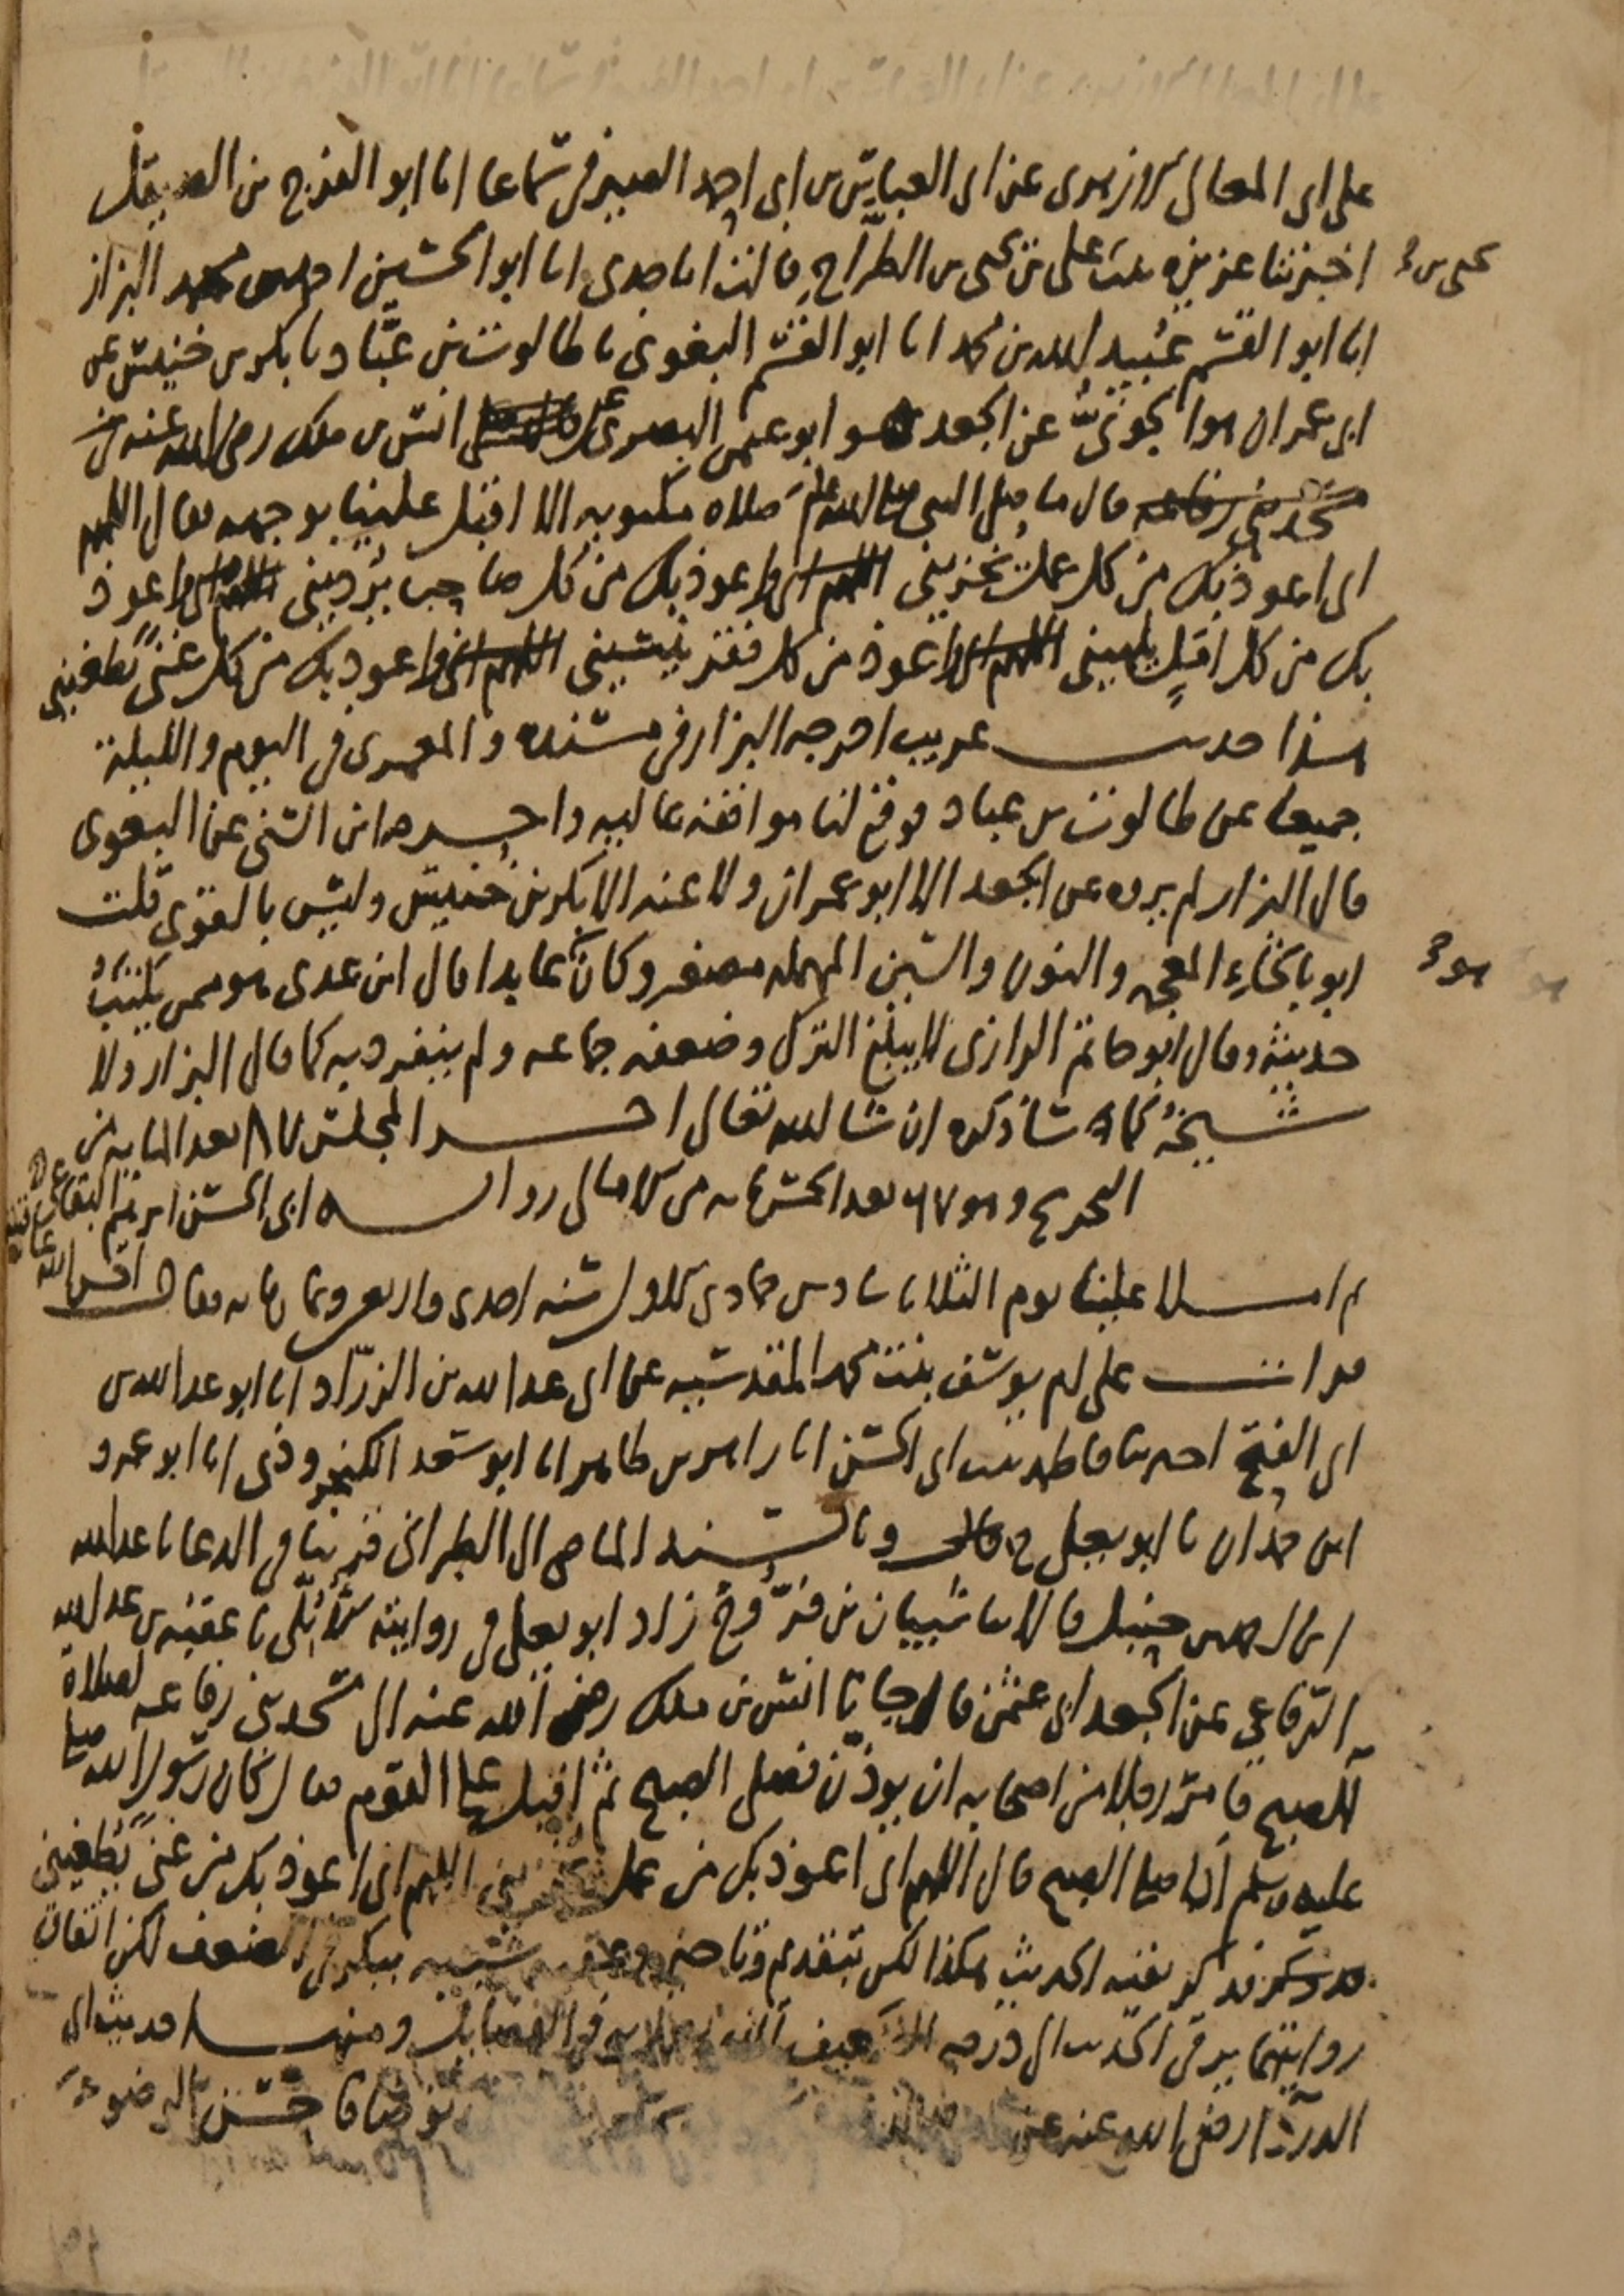 على ابي المعالي الازهري عن ابي العباس بن ابي احمد الصيرفي سماعا انا ابو الفرج بن الصيقل
اخبرتنا عزيزة بنت علي بن يحيى بن الطراح قالت انا جدي انا ابو الحسين احمد بن محمد البزاز
يحيى بن
انا ابو القسم عبيد الله بن محمد انا ابو القسم البغوي نا طالوت بن عباد نا بكر بن خنيس عن
ابي عمران هو الجوني عن الجعد هو ابو عثمن البصري عن انس بن ملك رضي الله عنه
قال ما صلى النبي صلى الله عليه وسلم صلاه مكتوبه الا اقبل علينا بوجهه فقال اللهم
اني اعوذ بك من كل عمل يخزيني واعوذ بك من كل صاحب يرديني واعوذ
بك من كل امل يلهيني واعوذ من كل فقر ينسيني واعوذ بك من كل غنى يطغيني
هذا حديث غريب اخرجه البزار في مسنده والمعمري في اليوم والليلة
جميعا عن طالوت بن عباد فوقع لنا موافقه عاليه واخرجه ابن السني عن البغوي
قال البزار لم يروه عن الجعد الا ابو عمران ولا عنه الا بكر بن خنيس وليس بالقوي قلت
ابوه بالخاء المعجمه والنون والسين المهمله مصغر وكان عابدا قال ابن عدي هو ممن يكتب
هو
حديثه وقال ابو حاتم الرازي لا يبلغ الترك وضعفه جماعه ولم ينفرد به كما قال البزار ولا
شيخه كما ساذكره ان شا الله تعالى اخر المجلس ٨٧ بعد المايه من
التخريج وهو ٦٧ بعد الخمسمايه من الامالي روايه ابي الحسن ابرهيم البقاعي
ثم املا علينا يوم الثلاثا سادس جمادى الاولى سنه احدى واربعين وثمانمايه فقال
قرات على ام يوسف بنت محمد المقدسيه عن ابي عبد الله بن الزراد انا ابو عبد الله بن
ابي الفتح اخبرتنا فاطمه بنت ابي الحسن انا زاهر بن طاهر انا ابو سعد الكنجروذي انا ابو عمرو
ابن حمدان نا ابو يعلى ح وبالسند الماضي الى الطبراني قريبا في الدعا نا عبد الله
ابن احمد بن حنبل قالا نا شيبان بن فروخ زاد ابو يعلى في روايته الابلي نا عقبه بن عبد الله
الرفاعي عن الجعد ابي عثمن قال جانا انس بن ملك رضي الله عنه الى مسجد بني رفاعه لصلاة
الصبح فامر رجلا من اصحابه ان يوذن فصلى الصبح ثم اقبل على القوم فقال كان رسول الله صلى
عليه وسلم اذا صلى الصبح قال اللهم اني اعوذ بك من عمل يخزيني اللهم اني اعوذ بك من غنى يطغيني
فذكر بقيه الحديث هكذا لكن بتقديم وتاخير وعقبه شبيه ببكر في الضعف لكن اتفاق
روايتهما يرقي الحديث الى درجه الضعيف الفضايل ومنها حديث ابي
الدردا رضي الله عنه عن توضا فاحسن الوضوء